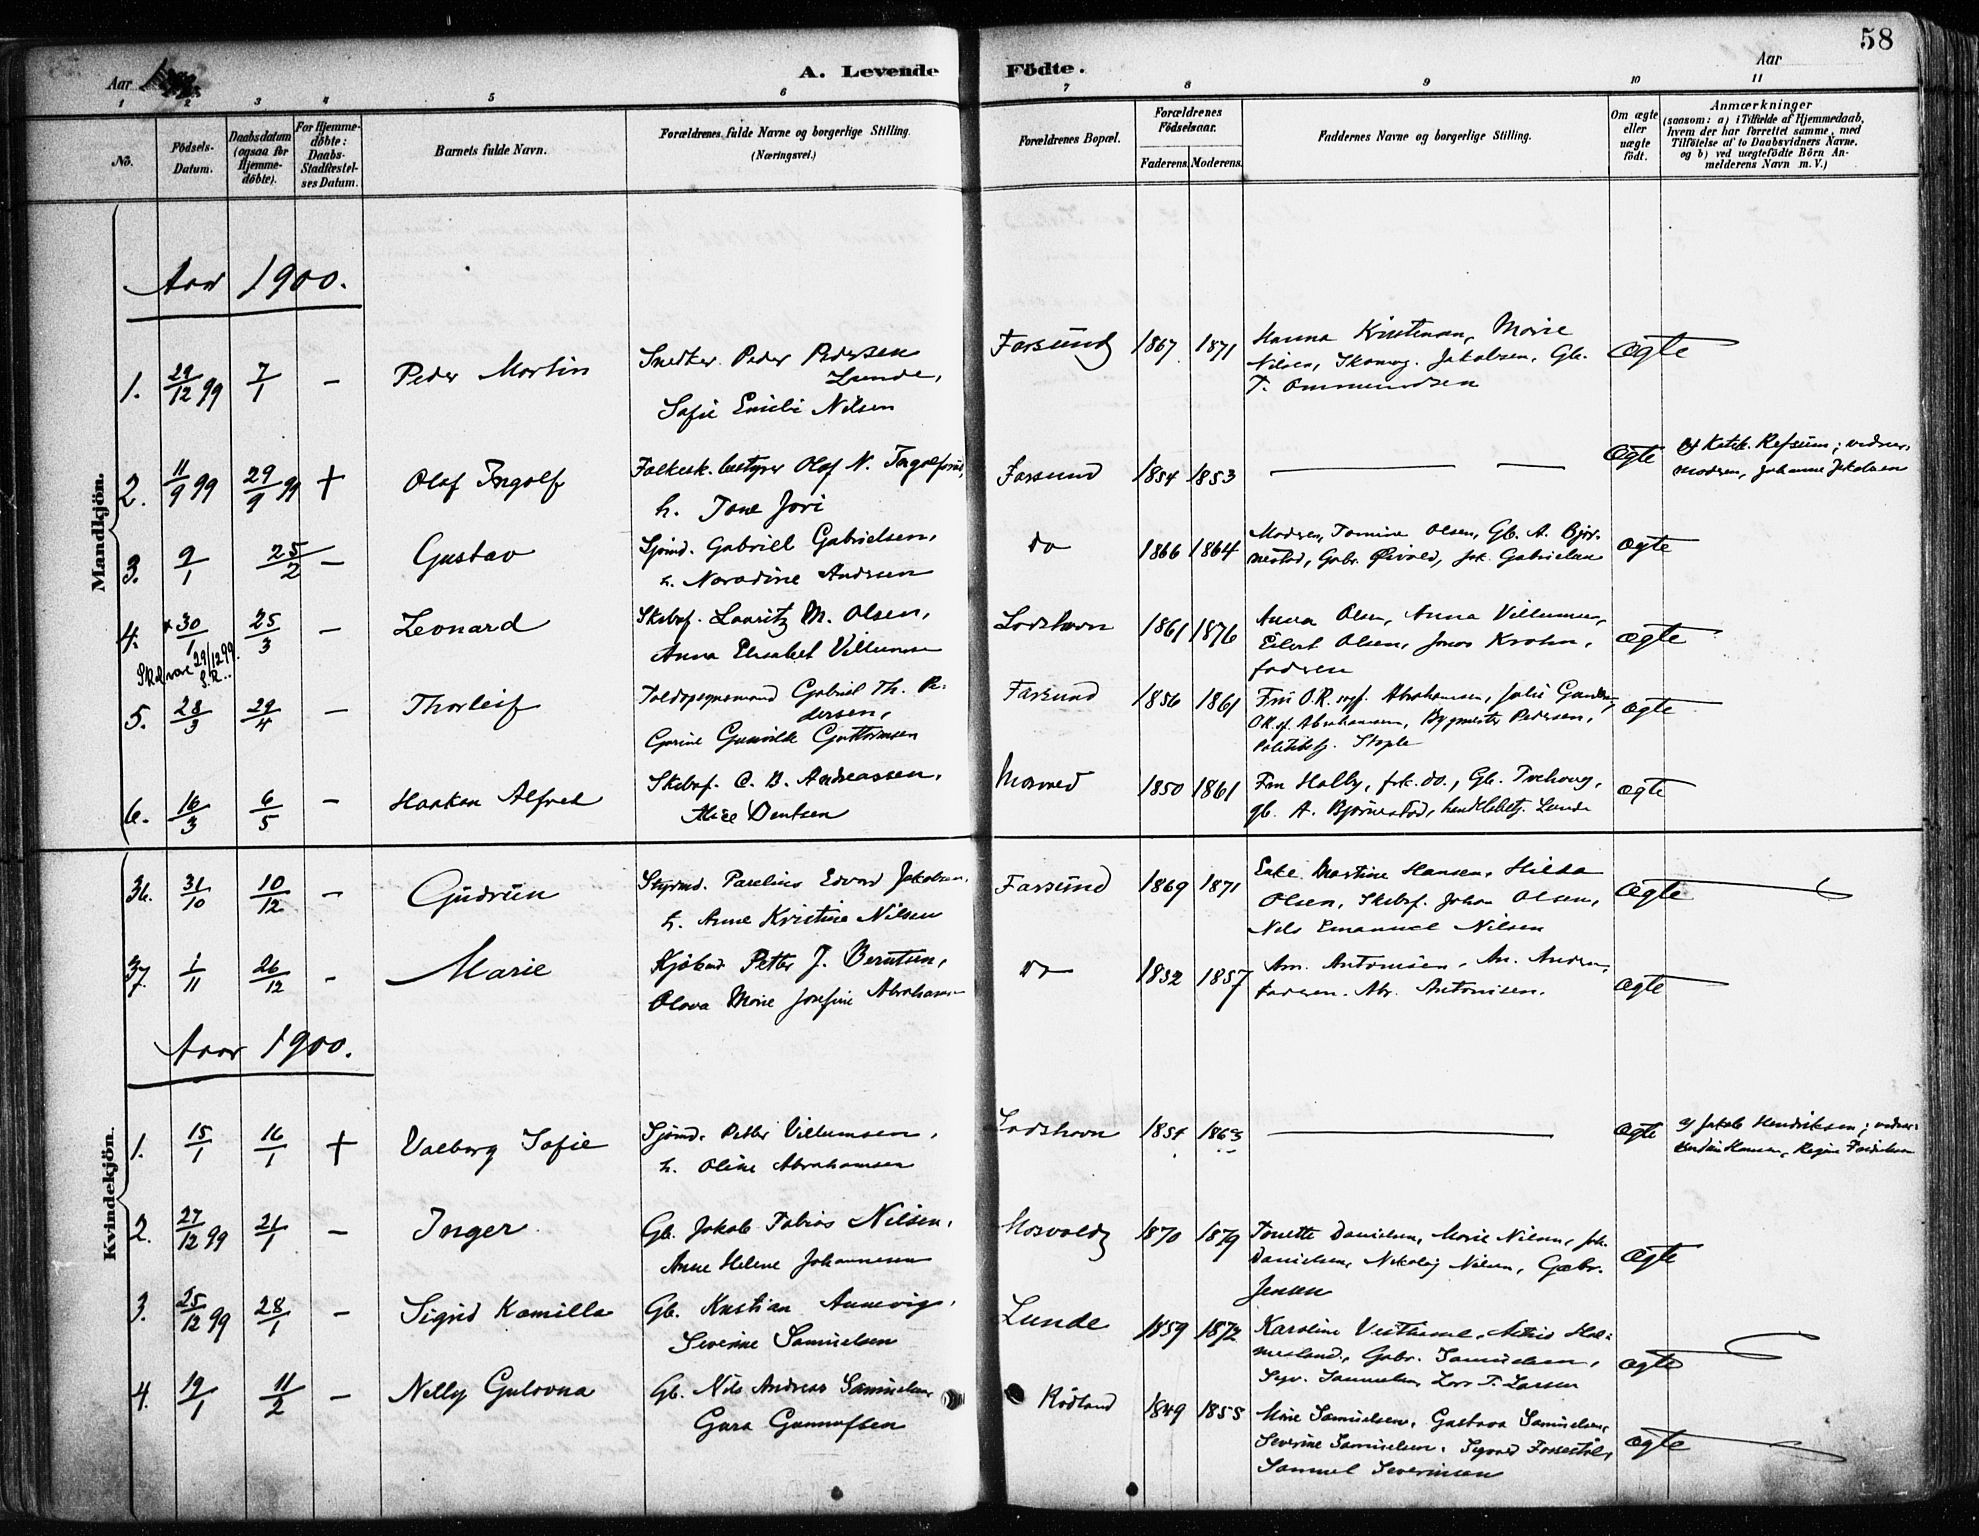 58
Aar
A. Levende Födte.
Aar
1 2 3 4 5 6 7 8 9 10 11
No.
Födsels-Datum.
Daabsdatum (ogsaa for Hjemme-döbte).
For Hjemme-döbte: Daabs-Stadfæstel-ses Datum.
Barnets fulde Navn.
Forældrenes fulde Navne og borgerlige Stilling. (Næringsvei.)
Forældrenes Bopæl.
Forældrenes Födselsaar.
Faderens. Moderens.
Faddernes Navne og borgerlige Stilling.
Om ægte eller uægte födt.
Anmærkninger
(saasom: a) i Tilfælde af Hjemmedaab,
hvem der har forrettet samme, med
Tilföielse af to Daabsvidners Navne.
og b) ved uægtefödte Börn An-
melderens Navn m. V.)
Mandkjön.
Aar 1900.
1. 29/12 99 7/1 – Peder Martin Snedker Peder Pedersen Farsund 1867 1871 Hanna Kristensen, Marie ægte
Lunde, Nilsen, Jakobsen, Gb.
Sofie Emilie Nilsen T. Ommundsen
2. 11/9 99 29/9 99 + Olaf Ingolf Folkesk. bestyrer Olaf N. Farsund 1854 1853 — ægte a/ Refsum; vidner:
h. Tone Jori moderen, Johanne Jakobsen
3. 9/1 25/2 – Gustav Sjömd. Gabriel Gabrielsen, do 1866 1864 Moderen, Tomine Olsen, Gb. A. Bjør- ægte
h. Andersen nestad, Gabr. Gabrielsen
4. 30/1 25/3 – Leonard Skibsf. Lauritz M. Olsen, Lodshavn 1861 1876 Anna Olsen, Anna Villumsen, ægte
Anna Elisabet Villumsen Eilert Olsen, Jonas Krohn,
faderen
Skal være 29/12 99.
5. 28/3 29/4 – Thorleif Gabriel Th. Pe- Farsund 1856 1861 Fru O.R. sagf. Abrahamsen, ægte
dersen, O.R.sf. Abrahamsen, Bygmester Pedersen,
Gurine Gunvilde Guttormsen Politibetj. Stople
6. 16/3 6/5 – Haakon Alfred Skibsf. C. B. Andreassen, 1850 1861 Fru Holby, frk. do., Gb. ægte
Alice Bentsen gb. A. Bjørnestad, handelsbetj. Lunde
Kvindekjön.
36. 31/10 10/12 – Gudrun Styrmd. Edvard Jakobsen, Farsund 1869 1871 Enke Martine Hansen, Hilda ægte
h. Anne Kristine Nilsen Olsen, Skibsf. Johan Olsen,
Nils Emanuel Nilsen
37. 1/11 26/12 – Marie Kjöbmd Petter J. Berntsen, do 1852 1857 An. Antonisen, An. ægte
Olava Marie Josefine Abrahamsen faderen. Abr. Antonisen.
Aar 1900.
1. 15/1 16/1 + Valborg Sofie Sjömd. Petter Villumsen, Lodshavn 1851 1863 — ægte a/ Jakob Hendriksen; vidner:
h. Oline Abrahamsen Hansen, Regine
2. 27/12 99 21/1 – Inger Gb. Jakob Tobias Nilsen, Mosvold 1870 1879 Tonette Danielsen, Marie Nilsen, Joh. ægte
Anne Helene Johannesen Danielsen, Nikolai Nilsen, Gabr.
Jensen
3. 25/12 99 28/1 – Sigrid Kamilla Gb. Kristian Annevig, Lunde 1859 1872 Karoline Vesthassel, Hal- ægte
Severine Samuelsen mesland, Gabr. Samuelsen,
Samuelsen, Lars T. Larsen
4. 19/1 11/2 – Nelly Gulovna Gb. Nils Andreas Samuelsen Rödland 1849 1855 Marie Samuelsen, Gustava Samuelsen, ægte
Gura Gunnufsen Severine Samuelsen, Sigvard
Samuel Severinsen